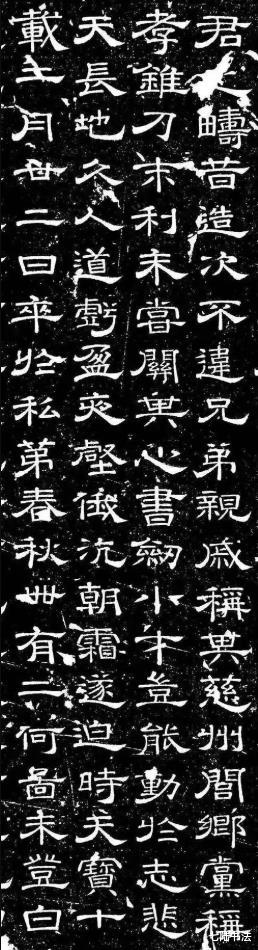 君之疇昔造次不違兄弟親戚稱其慈州閭鄉黨稱
孝錐刀末利未嘗關其心書劒小才豈能動於志悲
天長地久人道虧盈夜壑俄沉朝霜遂迫時天寶十
載十一月廿二日卒於私第春秋卌有二何啚未登白
书法